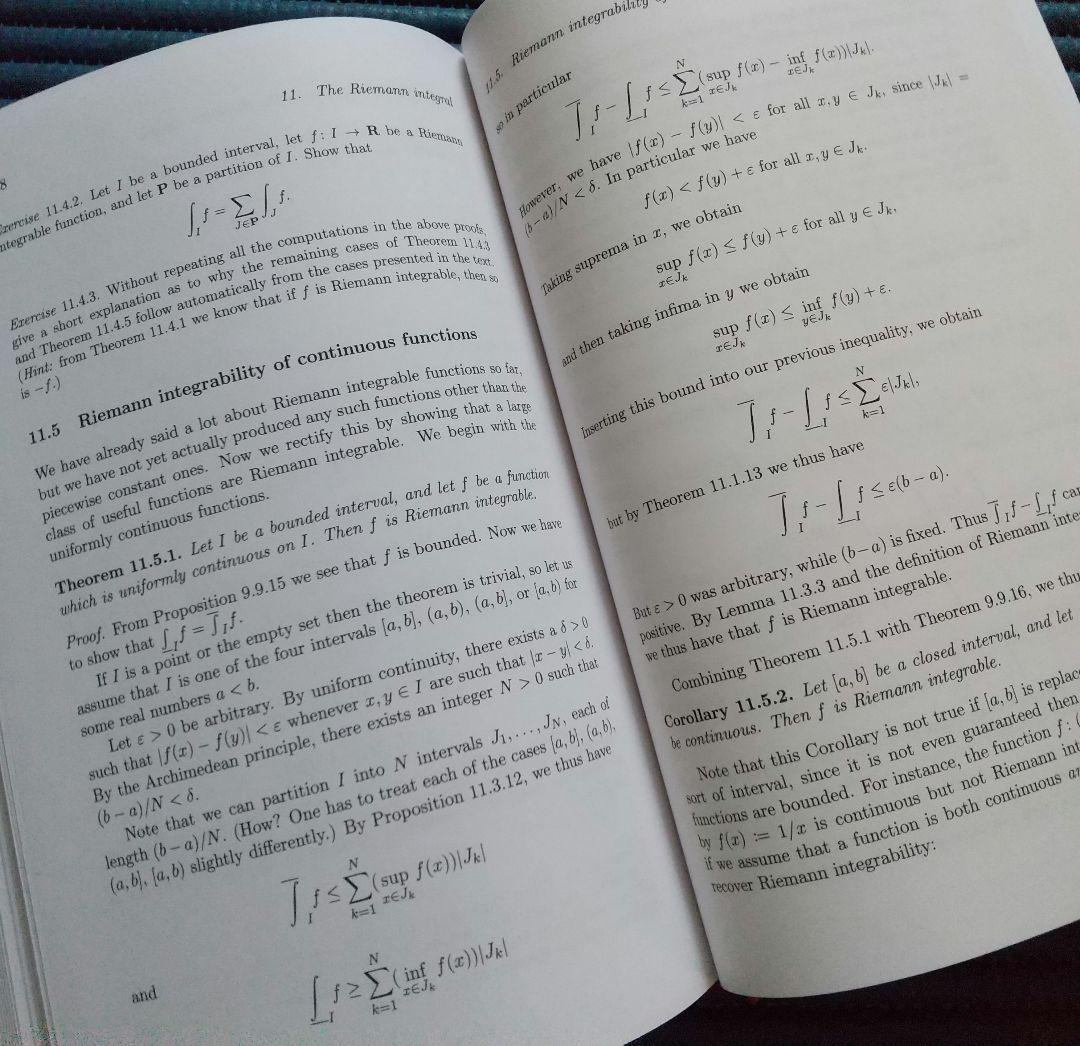 8
11. The Riemann integral
Exercise 11.4.2. Let I be a bounded interval, let f: I → R be a Riemann
integrable function, and let P be a partition of I. Show that
∫_I f = ∑_{J∈P} ∫_J f.
Exercise 11.4.3. Without repeating all the computations in the above proofs,
give a short explanation as to why the remaining cases of Theorem 11.4.3
and Theorem 11.4.5 follow automatically from the cases presented in the text.
(Hint: from Theorem 11.4.1 we know that if f is Riemann integrable, then so
is −f.)
11.5 Riemann integrability of continuous functions
We have already said a lot about Riemann integrable functions so far,
but we have not yet actually produced any such functions other than the
piecewise constant ones. Now we rectify this by showing that a large
class of useful functions are Riemann integrable. We begin with the
uniformly continuous functions.
Theorem 11.5.1. Let I be a bounded interval, and let f be a function
which is uniformly continuous on I. Then f is Riemann integrable.
Proof. From Proposition 9.9.15 we see that f is bounded. Now we have
to show that \underline{∫}_I f = \overline{∫}_I f.
If I is a point or the empty set then the theorem is trivial, so let us
assume that I is one of the four intervals [a, b], (a, b), (a, b], or [a, b) for
some real numbers a < b.
Let ε > 0 be arbitrary. By uniform continuity, there exists a δ > 0
such that |f(x) − f(y)| < ε whenever x, y ∈ I are such that |x − y| < δ.
By the Archimedean principle, there exists an integer N > 0 such that
(b − a)/N < δ.
Note that we can partition I into N intervals J_1, . . . , J_N, each of
length (b − a)/N. (How? One has to treat each of the cases [a, b], (a, b),
(a, b], [a, b) slightly differently.) By Proposition 11.3.12, we thus have
\overline{∫}_I f ≤ ∑_{k=1}^{N} (sup_{x∈J_k} f(x))|J_k|
and
\underline{∫}_I f ≥ ∑_{k=1}^{N} (inf_{x∈J_k} f(x))|J_k|
11.5. Riemann integrability
so in particular
\overline{∫}_I f − \underline{∫}_I f ≤ ∑_{k=1}^{N} (sup_{x∈J_k} f(x) − inf_{x∈J_k} f(x))|J_k|.
However, we have |f(x) − f(y)| < ε for all x, y ∈ J_k, since |J_k| =
(b − a)/N < δ. In particular we have
f(x) < f(y) + ε for all x, y ∈ J_k.
Taking suprema in x, we obtain
sup_{x∈J_k} f(x) ≤ f(y) + ε for all y ∈ J_k,
and then taking infima in y we obtain
sup_{x∈J_k} f(x) ≤ inf_{y∈J_k} f(y) + ε.
Inserting this bound into our previous inequality, we obtain
\overline{∫}_I f − \underline{∫}_I f ≤ ∑_{k=1}^{N} ε|J_k|,
but by Theorem 11.1.13 we thus have
\overline{∫}_I f − \underline{∫}_I f ≤ ε(b − a).
But ε > 0 was arbitrary, while (b − a) is fixed. Thus \overline{∫}_I f − \underline{∫}_I f can
positive. By Lemma 11.3.3 and the definition of Riemann inte
we thus have that f is Riemann integrable.
Combining Theorem 11.5.1 with Theorem 9.9.16, we thu
Corollary 11.5.2. Let [a, b] be a closed interval, and let
be continuous. Then f is Riemann integrable.
Note that this Corollary is not true if [a, b] is replac
sort of interval, since it is not even guaranteed then
functions are bounded. For instance, the function f: (
by f(x) := 1/x is continuous but not Riemann int
if we assume that a function is both continuous an
recover Riemann integrability: